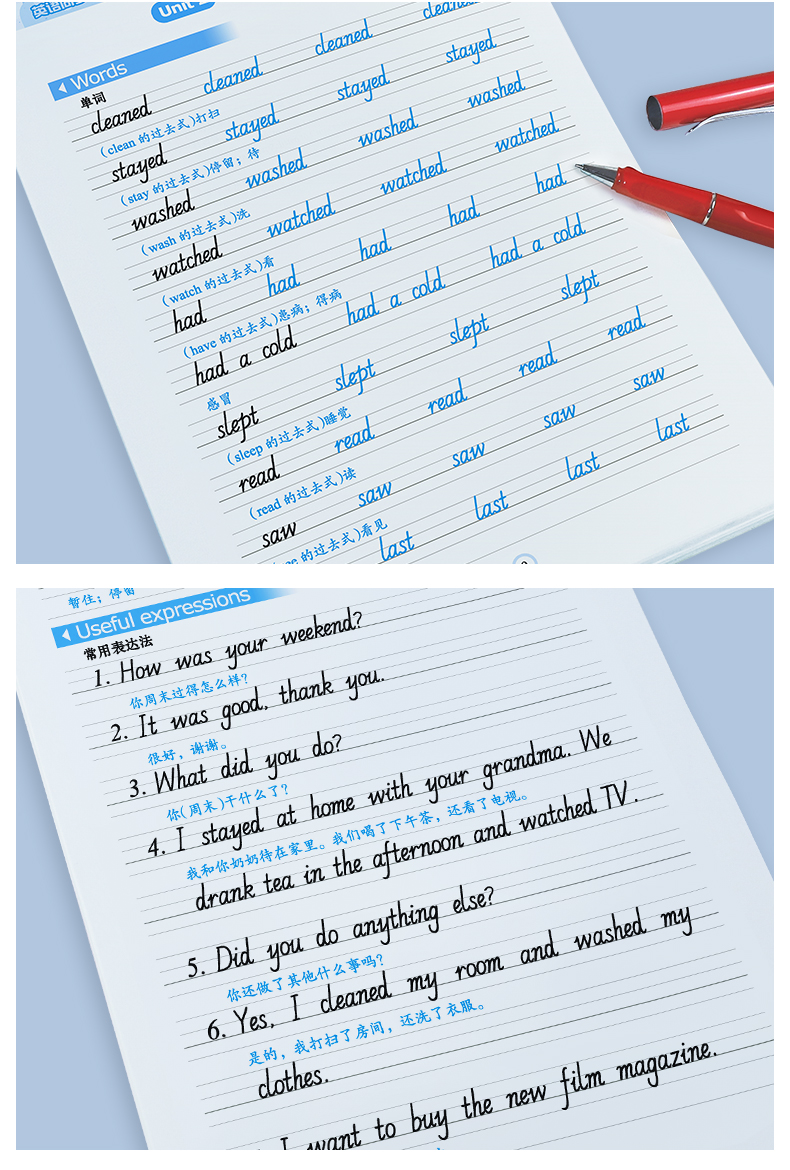 Unit
Words
单词
cleaned cleaned cleaned cleaned
(clean 的过去式)打扫
stayed stayed stayed stayed
(stay 的过去式)停留；待
washed washed washed washed
(wash 的过去式)洗
watched watched watched watched
(watch 的过去式)看
had had had had had
(have 的过去式)患病；得病
had a cold had a cold had a cold
感冒
slept slept slept slept
(sleep 的过去式)睡觉
read read read read read
(read 的过去式)读
saw saw saw saw saw
的过去式)看见
last last last last
暂住；停留
Useful expressions
常用表达法
1. How was your weekend?
你周末过得怎么样?
2. It was good, thank you.
很好，谢谢。
3. What did you do?
你(周末)干什么了?
4. I stayed at home with your grandma. We
我和你奶奶待在家里。我们喝了下午茶，还看了电视。
drank tea in the afternoon and watched TV.
5. Did you do anything else?
你还做了其他什么事吗?
6. Yes, I cleaned my room and washed my
是的，我打扫了房间，还洗了衣服。
clothes.
I want to buy the new film magazine.